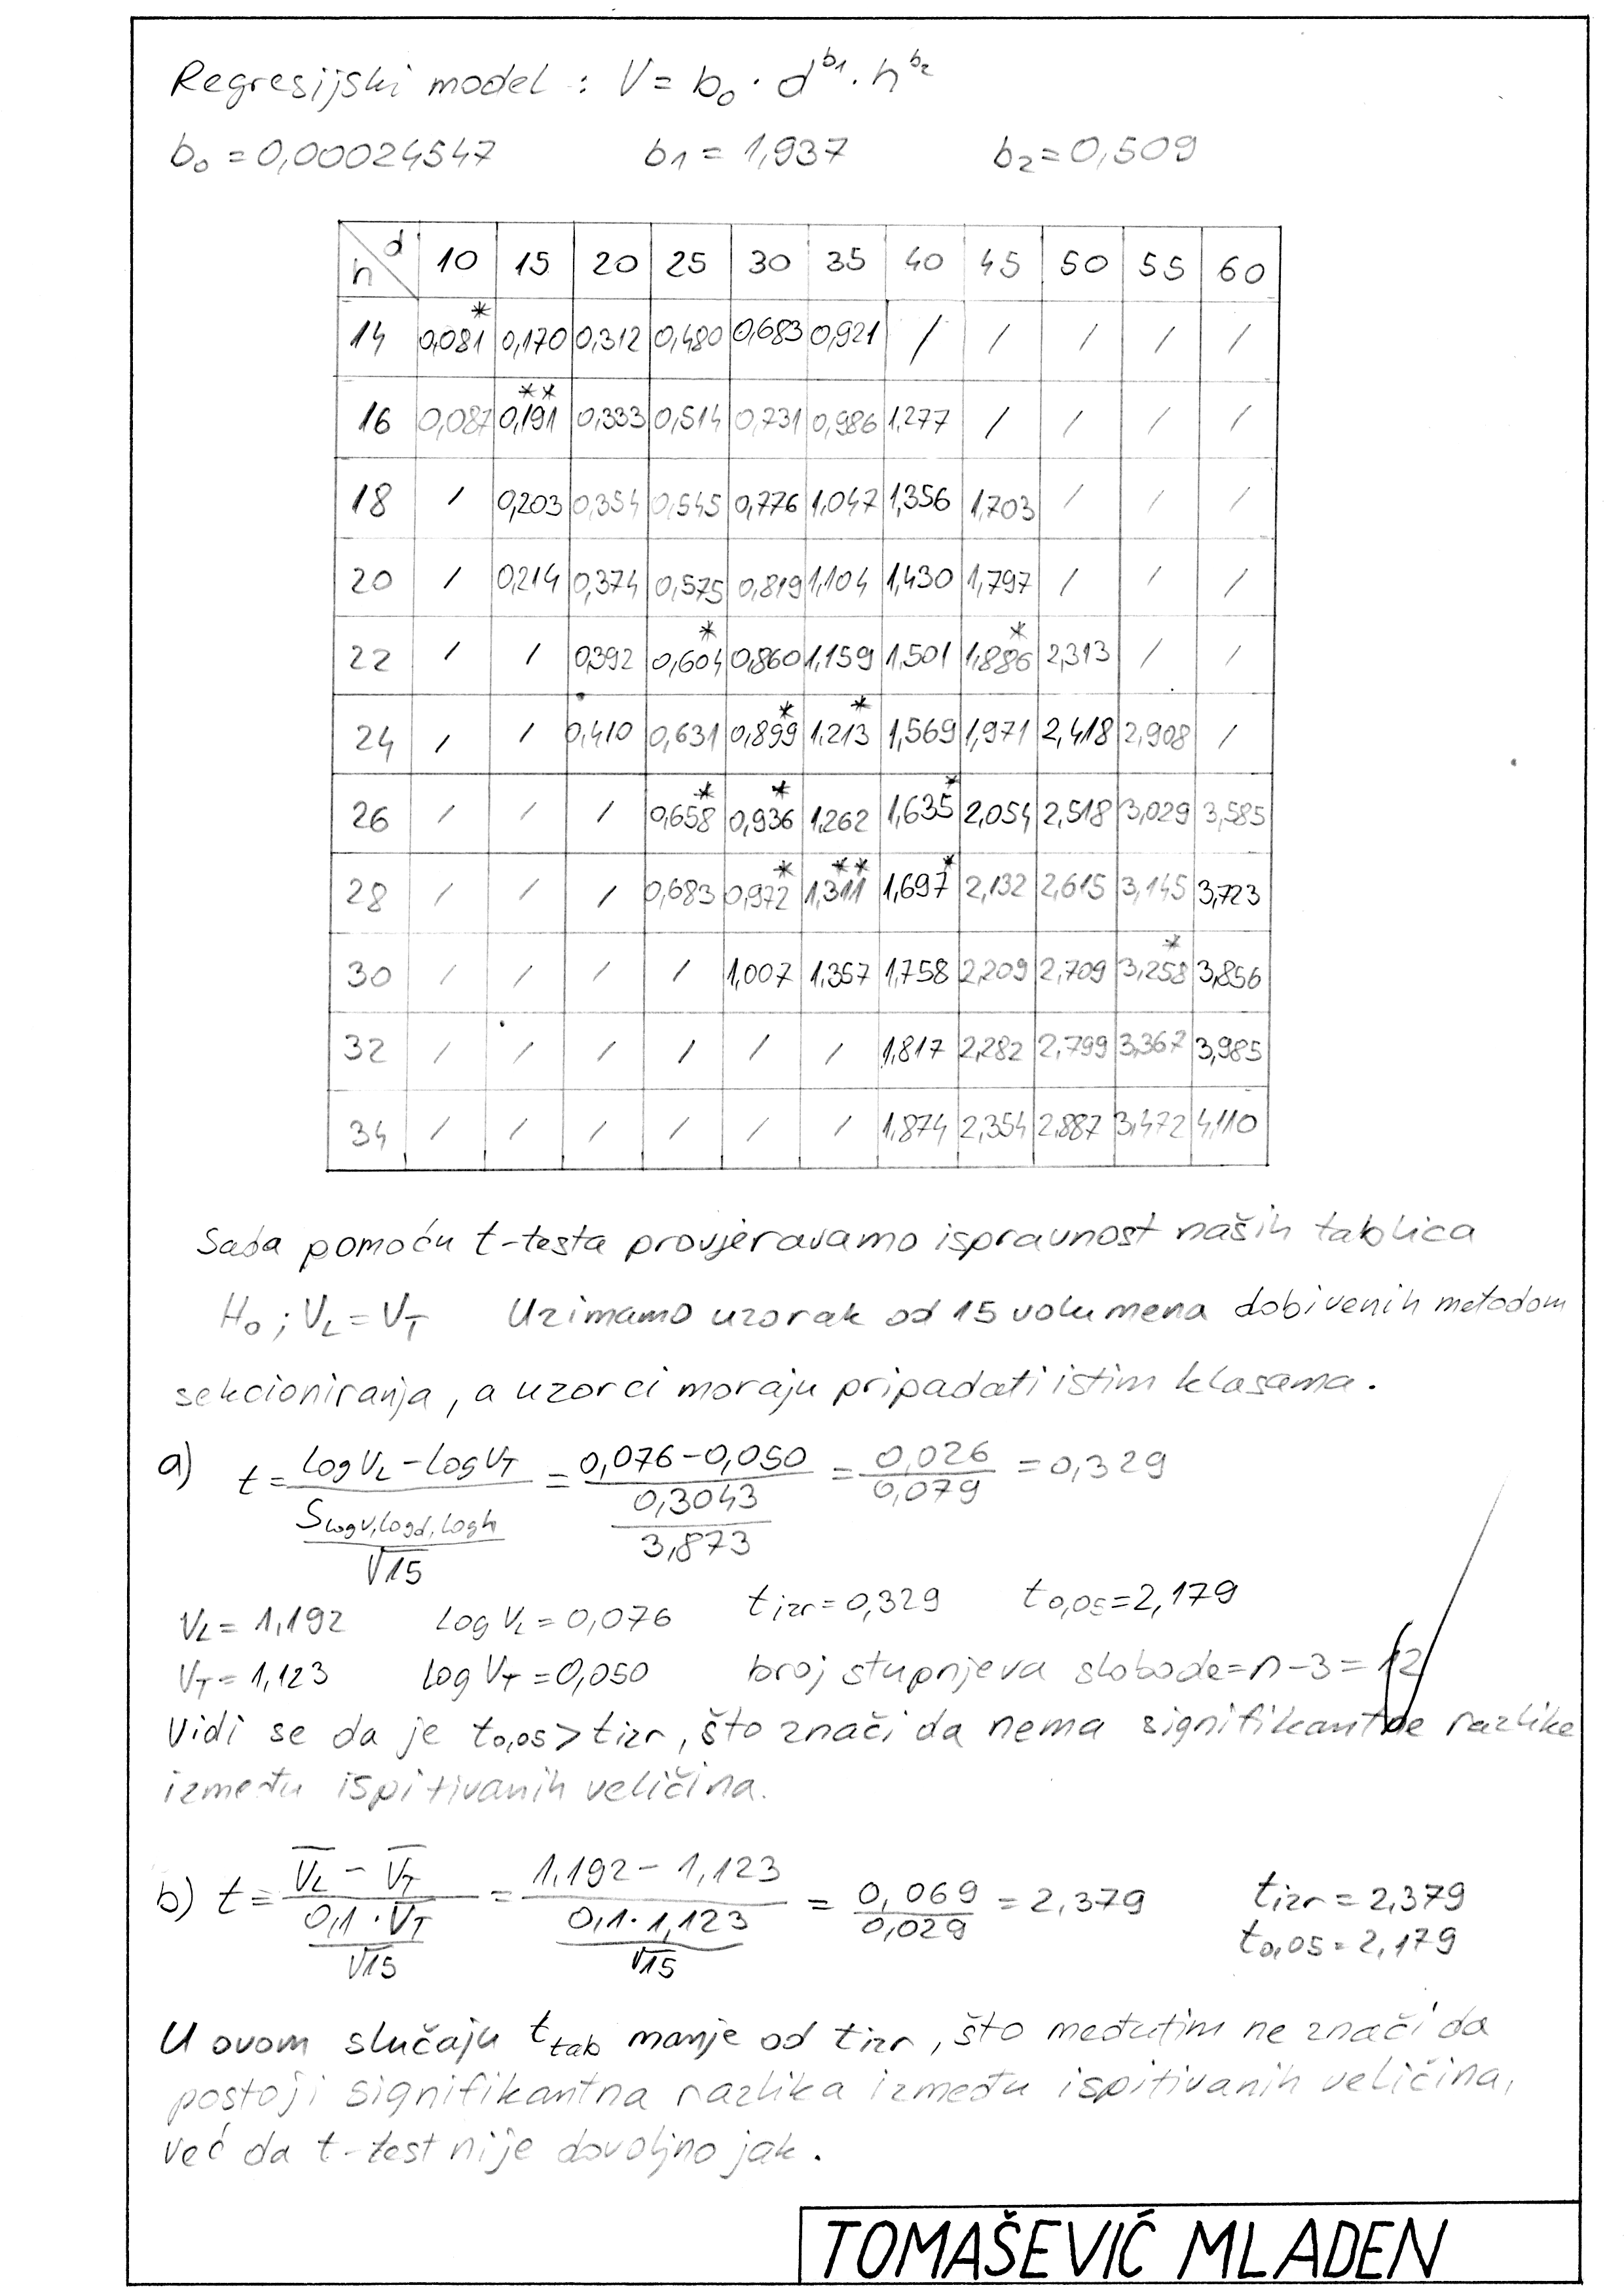 Regresijski model : V = b₀ · d^b₁ · h^b₂
b₀ = 0,00024547 b₁ = 1,937 b₂ = 0,509
h d 10 15 20 25 30 35 40 45 50 55 60
14 0,081* 0,170 0,312 0,480 0,683 0,921 / / / / /
16 0,087 0,191** 0,333 0,514 0,731 0,986 1,277 / / / /
18 / 0,203 0,354 0,545 0,776 1,047 1,356 1,703 / / /
20 / 0,214 0,374 0,575 0,819 1,104 1,430 1,797 / / /
22 / / 0,392 0,604* 0,860 1,159 1,501 1,886* 2,313 / /
24 / / 0,410 0,631 0,899* 1,213* 1,569 1,971 2,418 2,908 /
26 / / / 0,658* 0,936* 1,262 1,635* 2,054 2,518 3,029 3,585
28 / / / 0,683 0,972* 1,311** 1,697* 2,132 2,615 3,145 3,723
30 / / / / 1,007 1,357 1,758 2,209 2,709 3,258* 3,856
32 / / / / / / 1,817 2,282 2,799 3,367 3,985
34 / / / / / / 1,874 2,354 2,887 3,472 4,110
Sada pomoću t-testa provjeravamo ispravnost naših tablica
H₀ ; V_L = V_T Uzimamo uzorak od 15 volumena dobivenih metodom
sekcioniranja, a uzorci moraju pripadati istim klasama.
a) t = (log V_L - log V_T) / (S log v, log d, log h / √15) = (0,076 - 0,050) / (0,3043 / 3,873) = 0,026 / 0,079 = 0,329
V_L = 1,192 log V_L = 0,076 t izr = 0,329 t 0,05 = 2,179
V_T = 1,123 log V_T = 0,050 broj stupnjeva slobode = n - 3 = 12
Vidi se da je t 0,05 > t izr, što znači da nema signifikantne razlike
između ispitivanih veličina.
b) t = (V̅_L - V̅_T) / (0,1 · V̅_T / √15) = (1,192 - 1,123) / (0,1 · 1,123 / √15) = 0,069 / 0,029 = 2,379 t izr = 2,379
t 0,05 = 2,179
U ovom slučaju t tab manje od t izr, što međutim ne znači da
postoji signifikantna razlika između ispitivanih veličina,
već da t-test nije dovoljno jak.
TOMAŠEVIĆ MLADEN